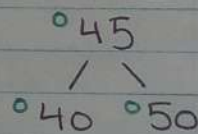 45
40 50